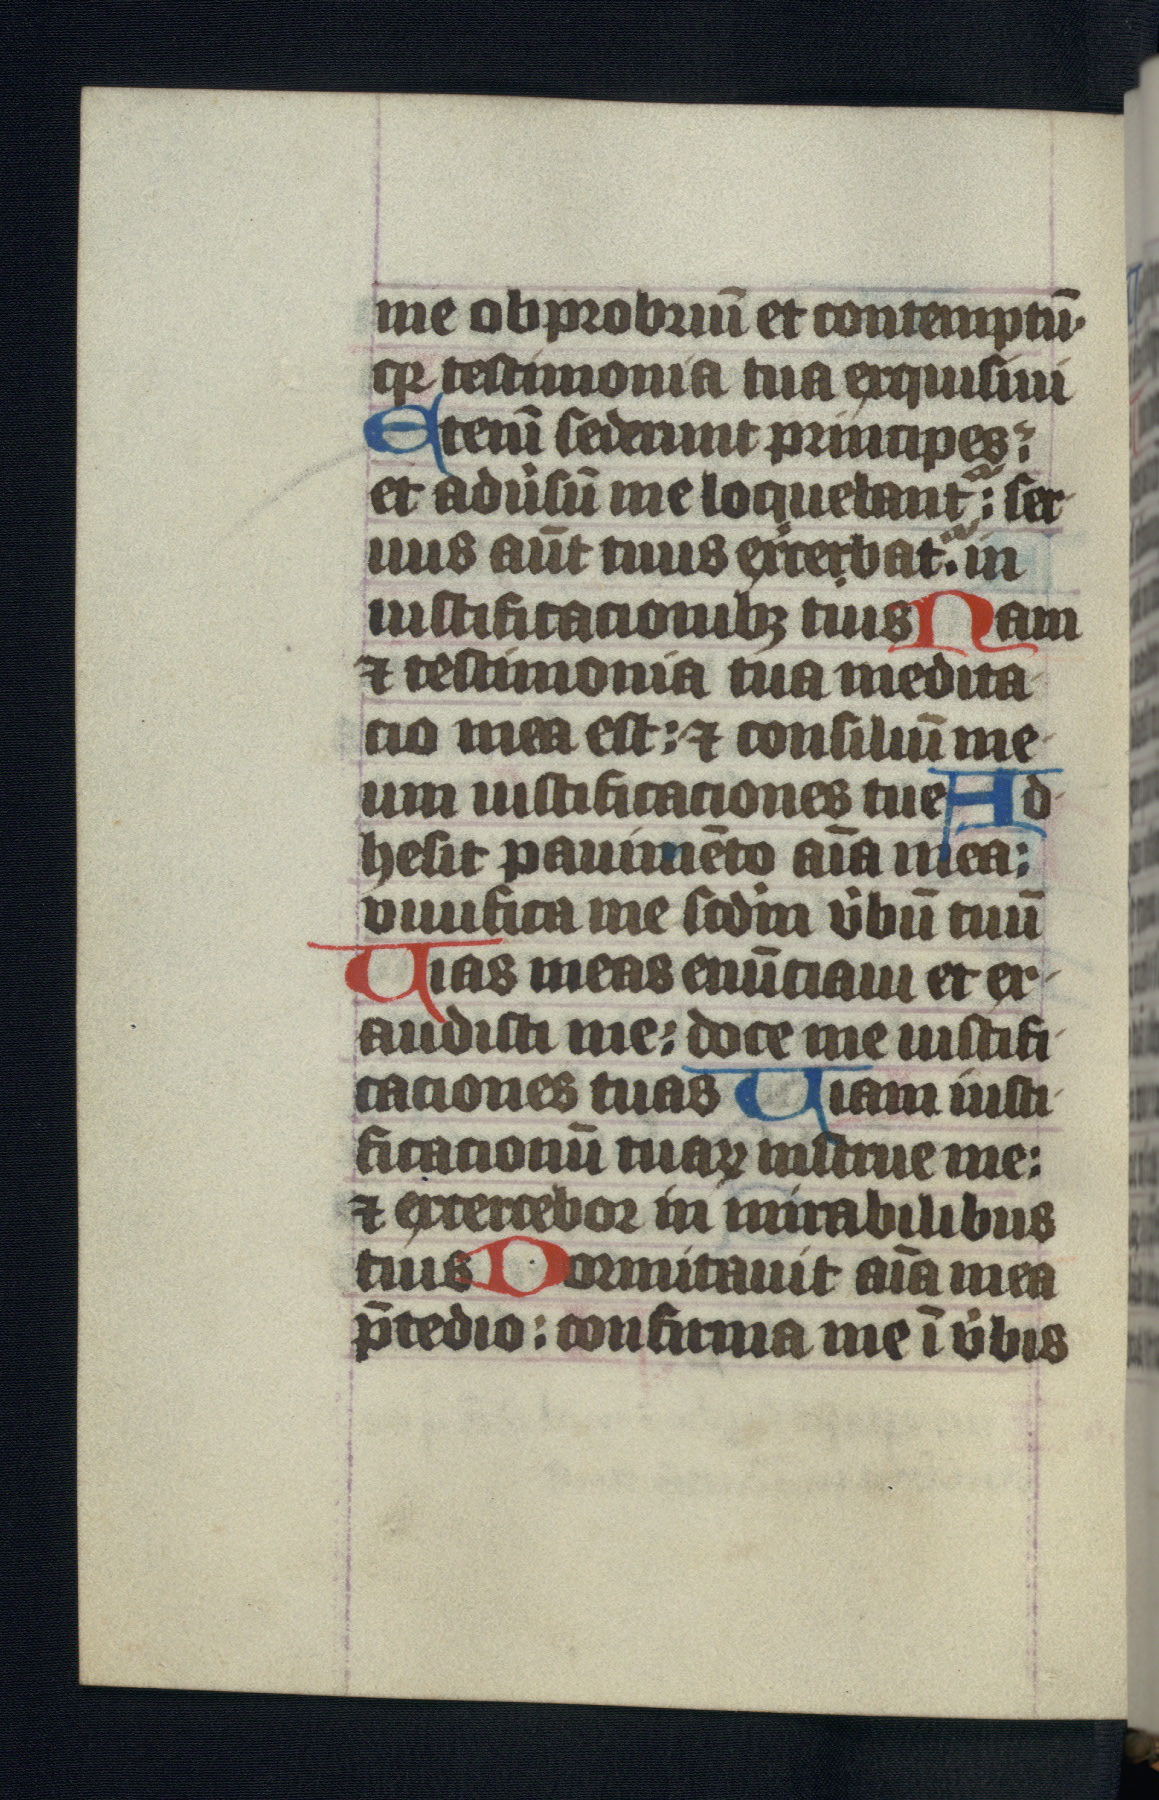 me obprobriū et contemptū·
qꝛ testimonia tua exquisiui
Etenī sederunt principes:
et adu̾sū me loquebantᷣ: ser-
uus aūt tuus exercebatᷣ. in
iustificacionibꝫ tuis Nam
⁊ testimonia tua medita-
cio mea est: ⁊ consiliū me-
um iustificaciones tue Ad-
hesit pauimēto aīa mea:
viuifica me scd̾m v̾bū tuū
Uias meas enūciaui et ex-
audisti me: doce me iustifi-
caciones tuas Uiam iusti-
ficacionū tuaꝝ instrue me:
⁊ exercebor in mirabilibus
tuis Dormitauit aīa mea
p̄ tedio: confirma me ī v̾bis